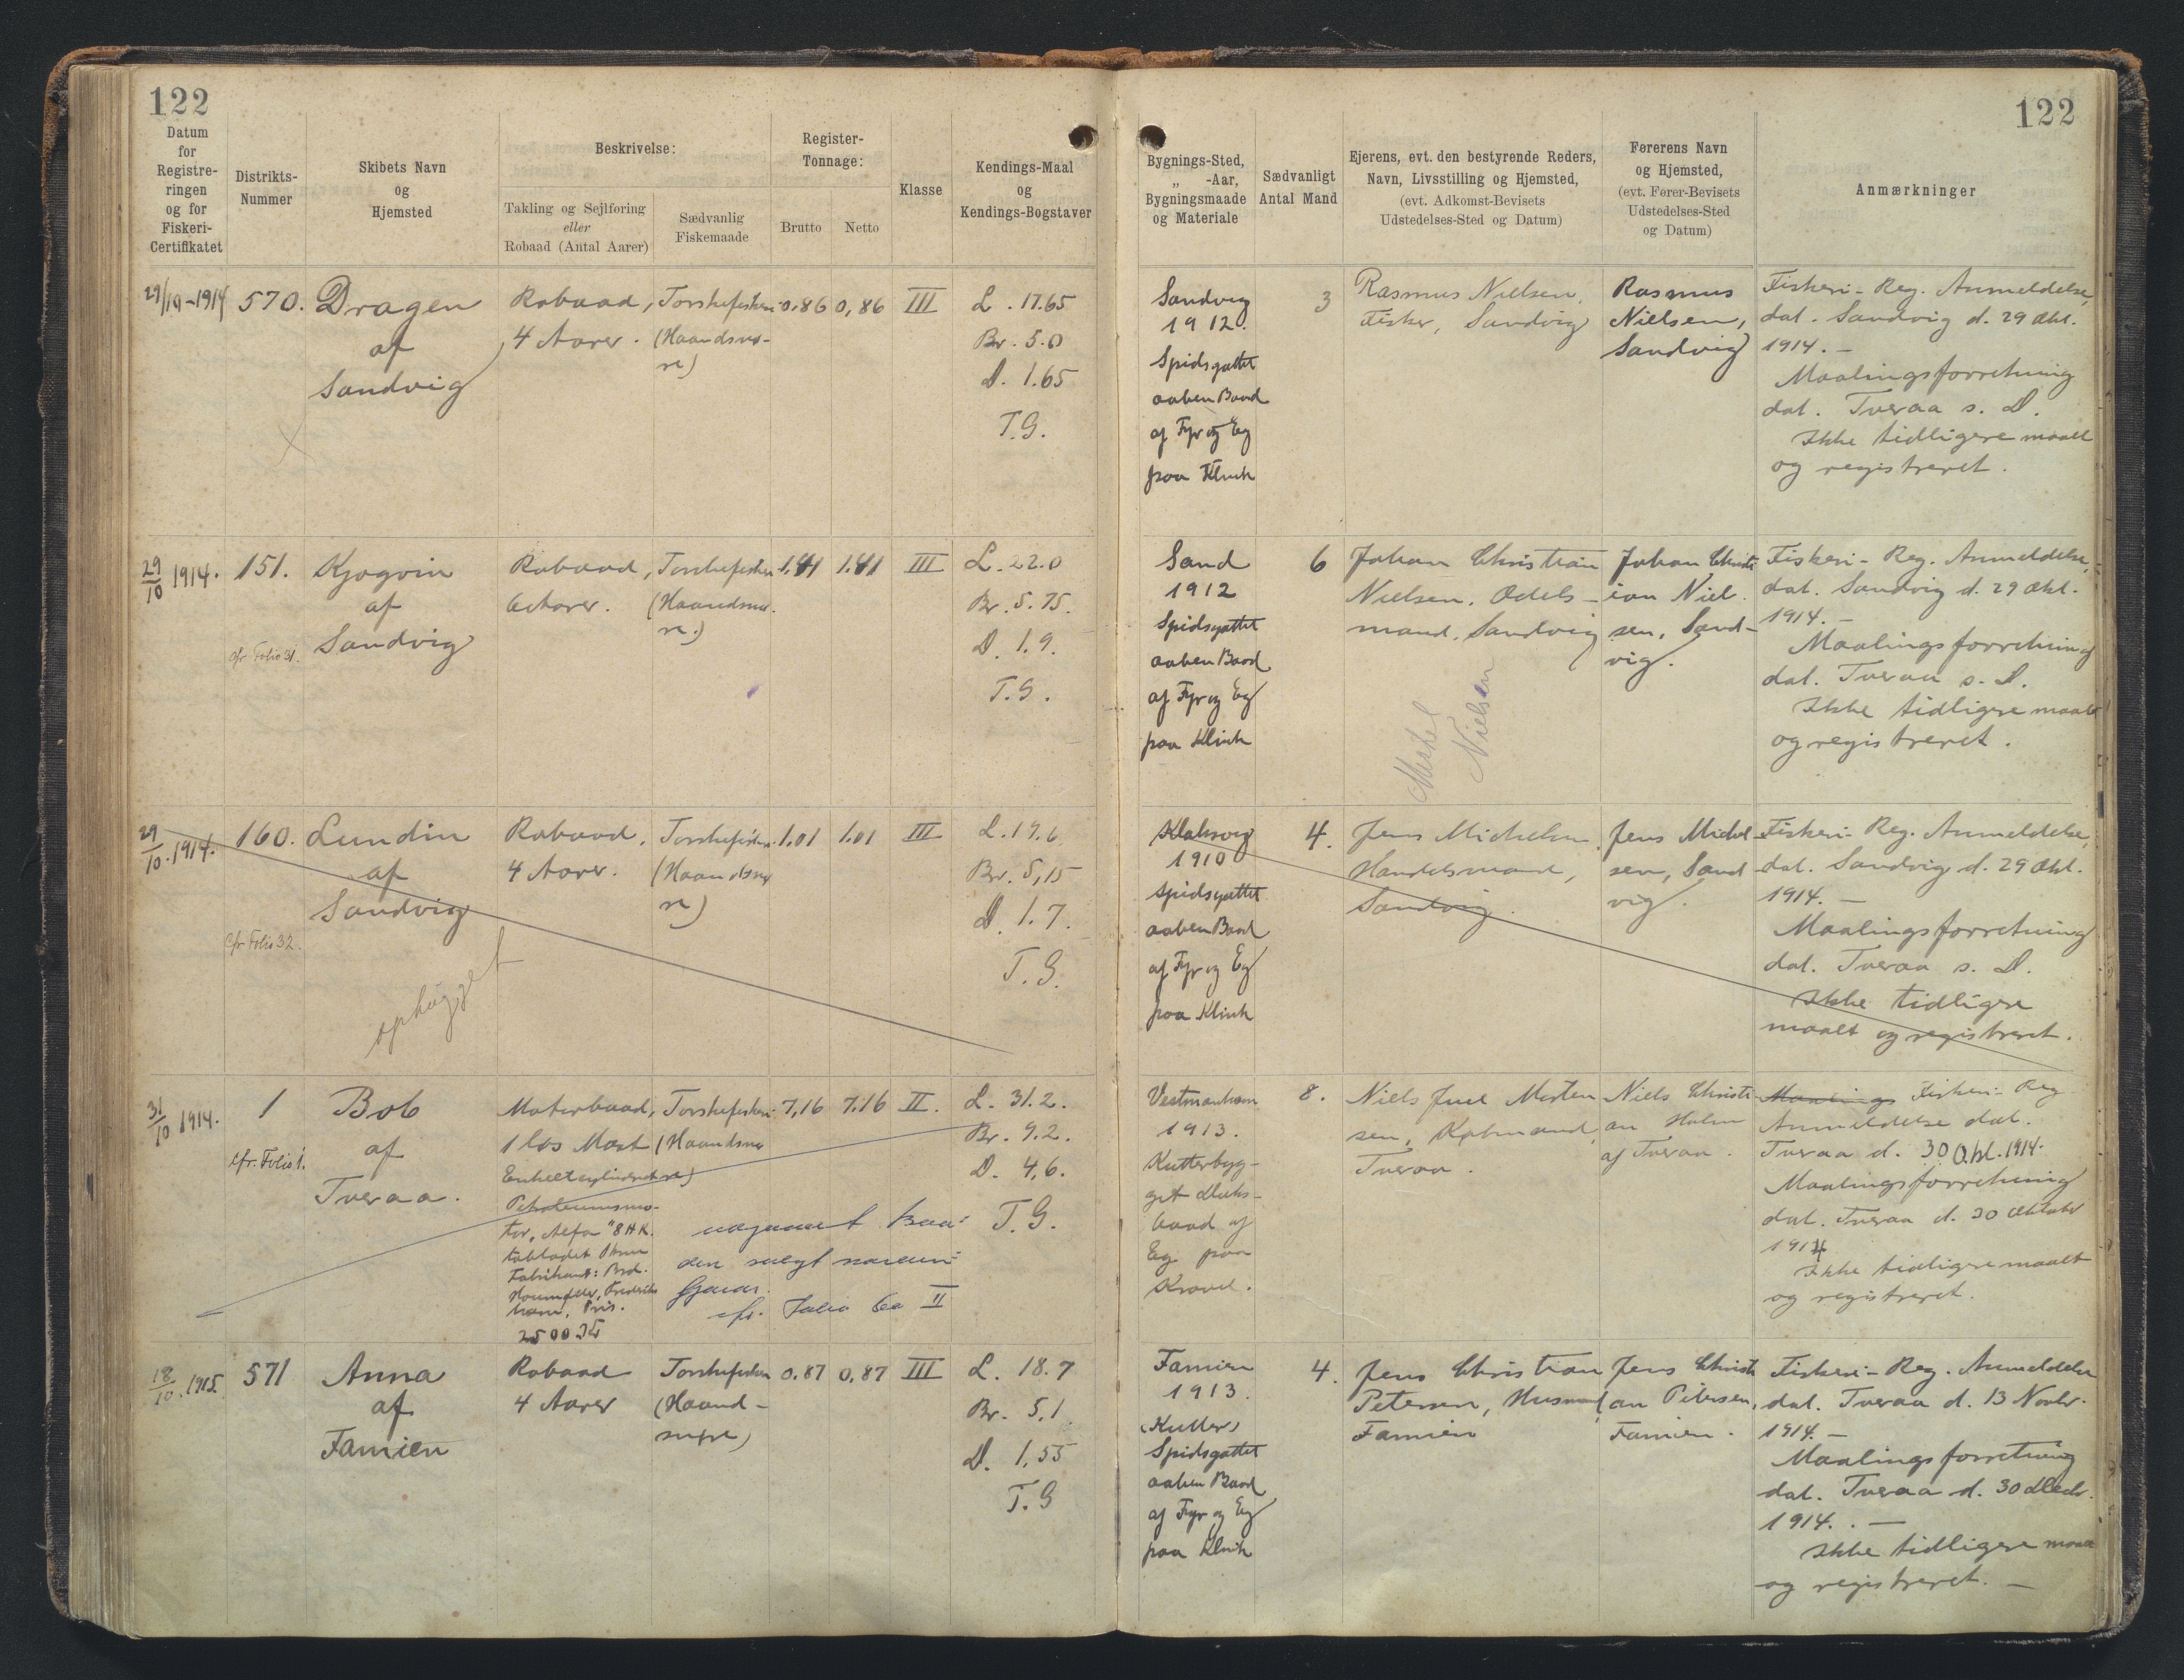 122
122
Datum
for
Registre-
ringen
og for
Fiskeri-
Certifikatet
Distrikts-
Nummer
Skibets Navn
og
Hjemsted
Beskrivelse:
Takling og Sejlføring
eller
Robaad (Antal Aarer)
Sædvanlig
Fiskemaade
Register-
Tonnage:
Brutto
Netto
Klasse
Kendings-Maal
og
Kendings-Bogstaver
Bygnings-Sted,
„ -Aar,
Bygningsmaade
og Materiale
Sædvanligt
Antal Mand
Ejerens, evt. den bestyrende Reders,
Navn, Livsstilling og Hjemsted,
(evt. Adkomst-Bevisets
Udstedelses-Sted og Datum)
Førerens Navn
og Hjemsted,
(evt. Fører-Bevisets
Udstedelses-Sted
og Datum)
Anmærkninger
29/10-1914
570.
Dragen
af
Sandvig
Robaad,
4 Aarer.
Torskefiskeri
(Haandsnø-
re)
0,86
0,86
III
L. 17.65
Br. 5.0
D. 1.65
T.G.
Sandvig
1912.
Spidsgattet
aaben Baad
af Fyr og Eg
paa Klink
3
Rasmus Nielsen,
Fisker, Sandvig
Rasmus
Nielsen,
Sandvig
Fiskeri-Reg. Anmeldelse,
dat. Sandvig d. 29 Okt.
1914. —
Maalingsforretning
dat. Tveraa s. D.
Ikke tidligere maalt
og registreret.
29/10 1914.
151.
cfr. Folio 31.
Kjogvin
af
Sandvig
Robaad,
6 Aarer.
Torskefiskeri
(Haandsnø-
re.)
1.41
1.41
III
L. 22.0
Br. 5.75.
D. 1.9.
T.G.
Sand
1912
Spidsgattet
aaben Baad
af Fyr og Eg
paa Klink
6
Johan Christian
Nielsen, Odels-
mand, Sandvig
Nielsen
Johan Christi
ian Niel-
sen, Sand-
vig.
Fiskeri-Reg. Anmeldelse,
dat. Sandvig d. 29 Okt.
1914. —
Maalingsforretning
dat. Tveraa s. D.
Ikke tidligere maalt
og registreret.
29/10.1914.
160.
cfr. Folio 32.
Lundin
af
Sandvig
ophugget
Robaad,
4 Aarer.
Torskefiskeri
(Haandsnø
re)
1.01
1.01
III
L. 19.6
Br. 5,15
D. 1.7.
T.G.
Klaksvig
1910
Spidsgattet
aaben Baad
af Fyr og Eg
paa Klink
4.
Jens Michelsen,
Handelsmand,
Sandvig.
Jens Michel
sen, Sand
vig.
Fiskeri-Reg. Anmeldelse,
dat. Sandvig d. 29 Okt.
1914. —
Maalingsforretning
dat. Tveraa s. D.
Ikke tidligere
maalt og registreret.
31/10 1914.
1
cfr. Folio 1.
Bob
af
Tveraa.
Motorbaad,
1 løs Mast
Enkeltcylindret
Petroleumsmo-
tor, "Alfa" 8 HK.
tobladet Skrue
Fabrikant: Brd.
Houmøller, Frederiks
havn, Pris.
2500 Kr
Torskefiskeri
(Haandsnø
re)
7,16
7.16
II.
L. 31.2.
Br. 9.2.
D. 4,6.
T.G.
udgaaet Baa-
den solgt
cfr. Folio 60 II
Vestmanhavn
1913.
Kutterbyg-
get Dæks-
baad af
Eg paa
Kravel.
8.
Niels Juel Morten
sen, Købmand,
Tveraa.
Niels Christi
an Holm
af Tveraa.
Maalings Fiskeri-Reg
Anmeldelse dat.
Tveraa d. 30 Okt. 1914.
Maalingsforretning
dat. Tveraa d. 30 Oktober
1914
Ikke tidligere maalt
og registreret.
18/10.1915.
571
Anna
af
Famien
Robaad
4 Aarer
Torskefiskeri
(Haand-
snøre)
0.87
0,87
III
L. 18.7
Br. 5,1
D. 1,55
T.G
Famien
1913.
(Kutter)
Spidsgattet
aaben Baad
af Fyr og Eg
paa Klink
4.
Jens Christian
Petersen, Husmand
Famien
Jens Christi
an Petersen,
Famien.
Fiskeri-Reg. Anmeldelse
dat. Tveraa d. 13 Novbr.
1914. —
Maalingsforretning
dat. Tveraa d. 30 Decbr.
1914. —
Ikke tidligere maalt
og registreret. —